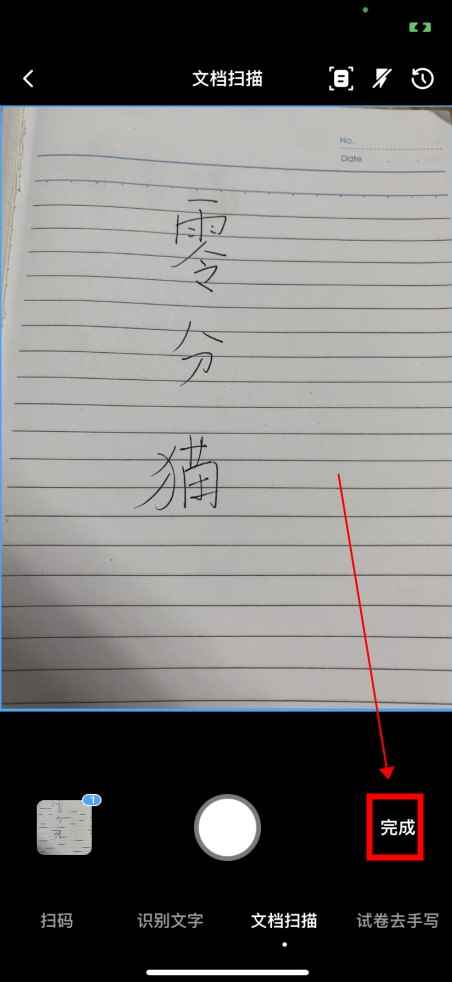 文档扫描
No.
Date
零
分
猫
1
完成
扫码
识别文字
文档扫描
试卷去手写